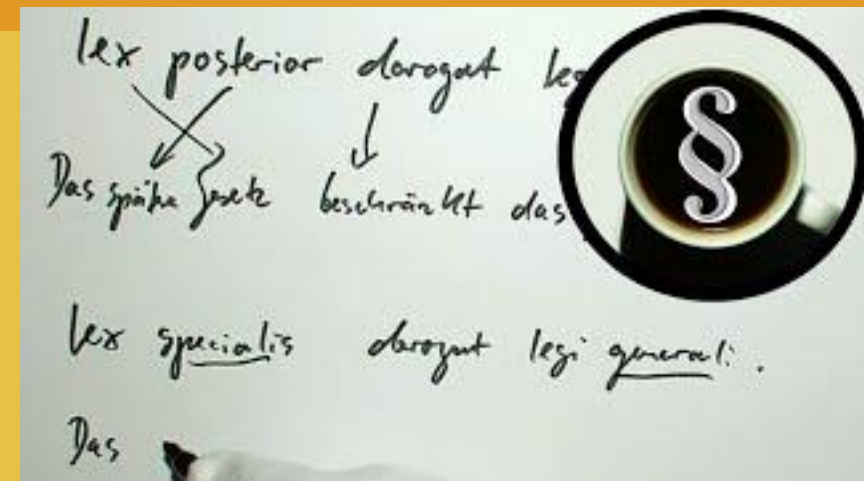 lex posterior derogat leg
Das späte Gesetz beschränkt das
§
lex specialis derogat legi generali.
Das